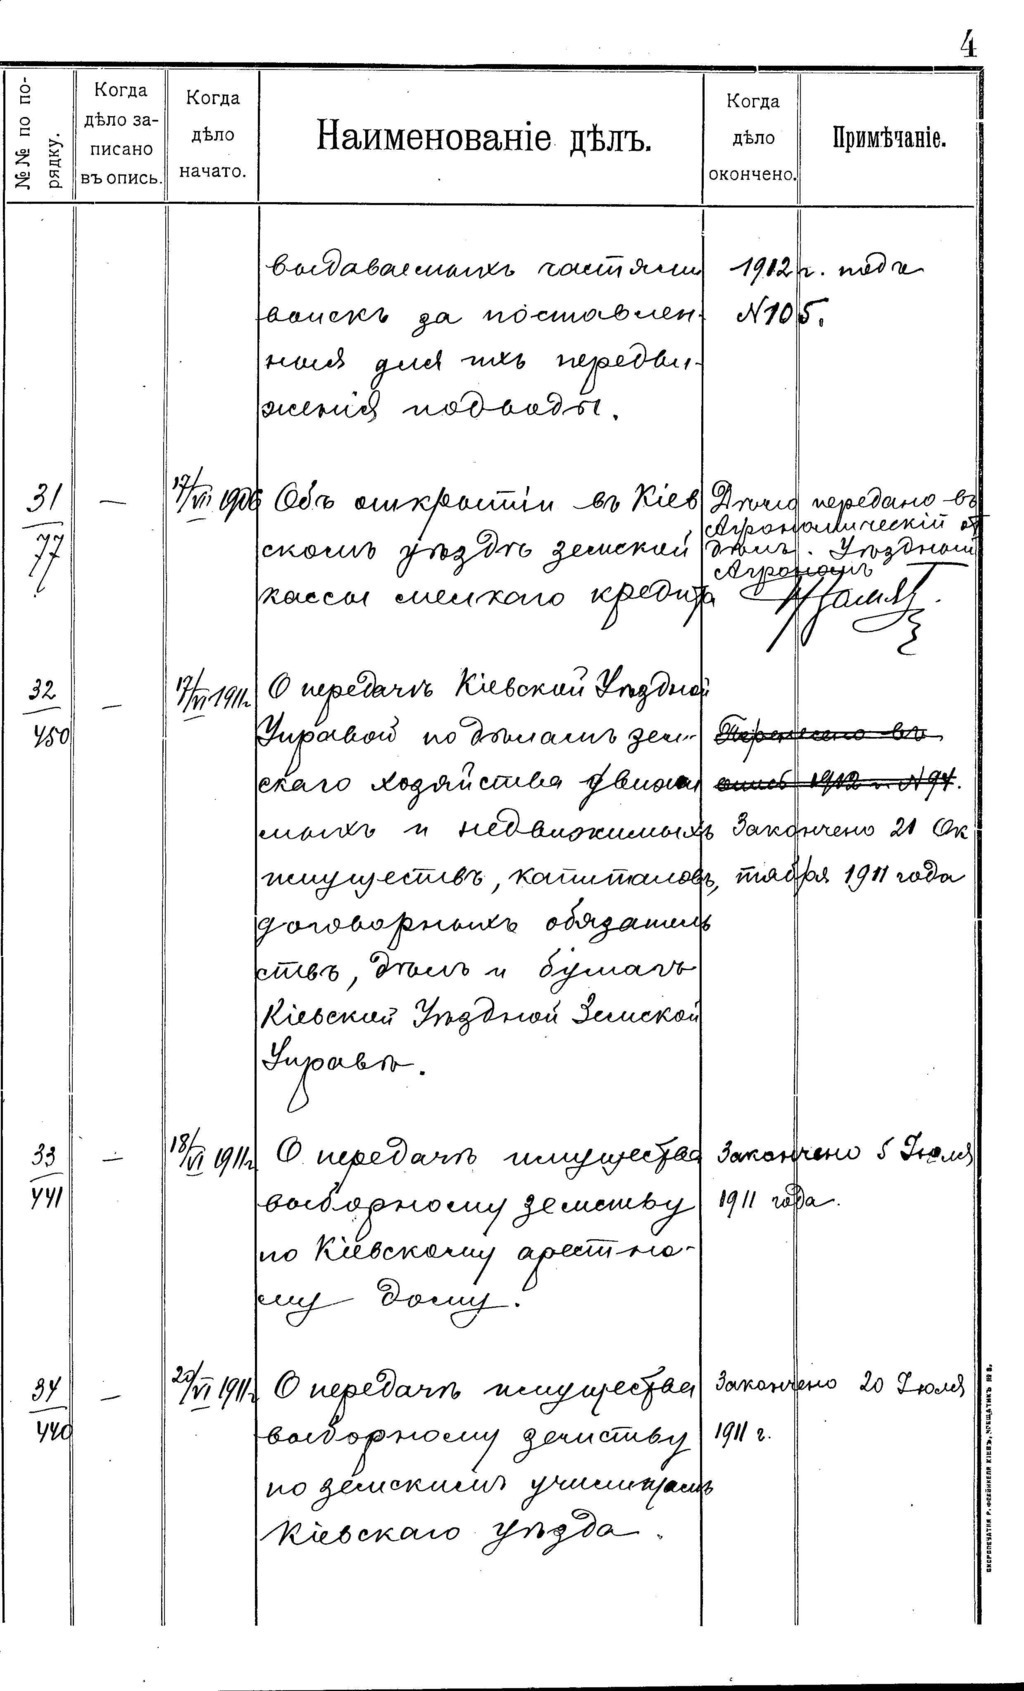 4
№№ по по-
рядку.
Когда
дѣло за-
писано
въ опись.
Когда
дѣло
начато.
Наименованіе дѣлъ.
Когда
дѣло
окончено.
Примѣчаніе.
выдаваемыхъ частями
войскъ за поставлен-
ныя для ихъ передви-
женія подводы.
1912 г. подъ
№105.
31
77
—
17/VI 1906
Объ открытіи въ Кіев
скомъ уѣздѣ земской
кассы мелкаго кредита
Дѣло передано въ
Агрономическій от
дѣлъ. Уѣздный
Агрономъ
32
450
—
17/VI 1911г.
О передачѣ Кіевской Уѣздной
Управой по дѣламъ зем-
скаго хозяйства движи
мыхъ и недвижимыхъ
имуществъ, капиталовъ,
договорныхъ обязатель
ствъ, дѣлъ и бумагъ
Кіевской Уѣздной Земской
Управѣ.
Перенесено въ
опись 1912 г. №94.
Закончено 21 Ок
тября 1911 года
33
441
—
18/VI 1911г.
О передачѣ имущества
выборному земству
по Кіевскому арестно-
му дому.
Закончено 5 Іюля
1911 года.
34
440
—
20/VI 1911г.
О передачѣ имущества
выборному земству
по земскимъ училищамъ
Кіевскаго уѣзда.
Закончено 20 Іюля
1911 г.